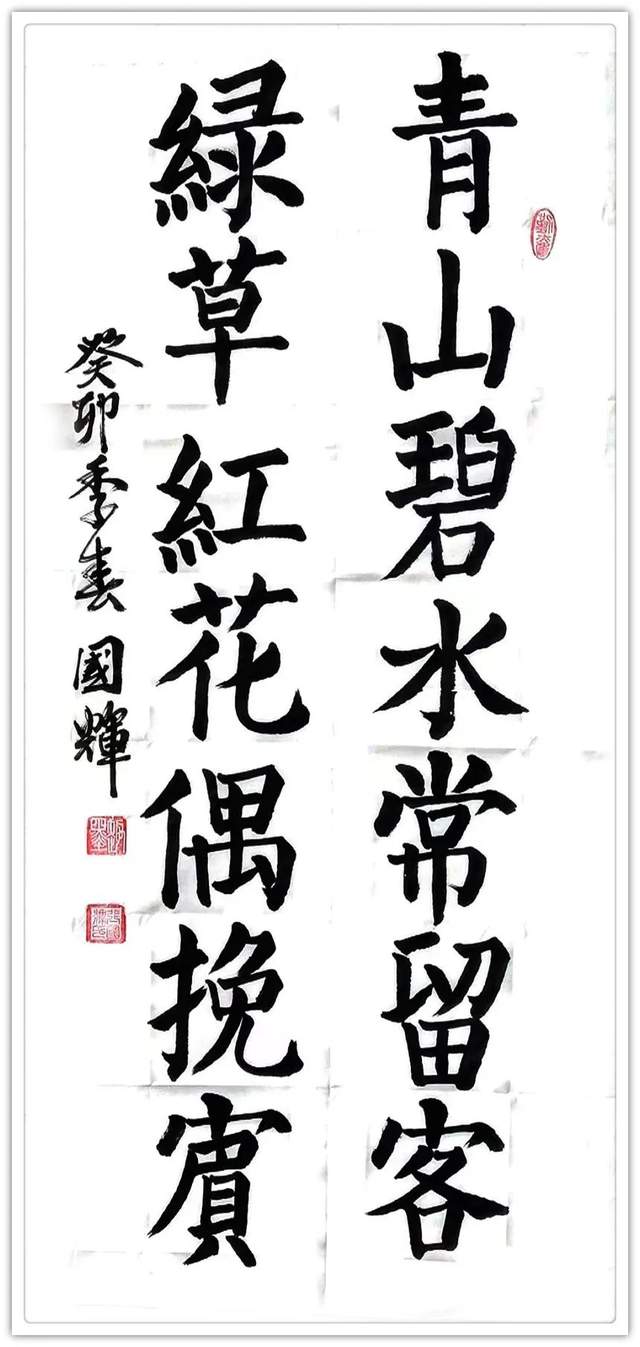 青山碧水常留客
綠草紅花偶挽賓
癸卯季春國輝